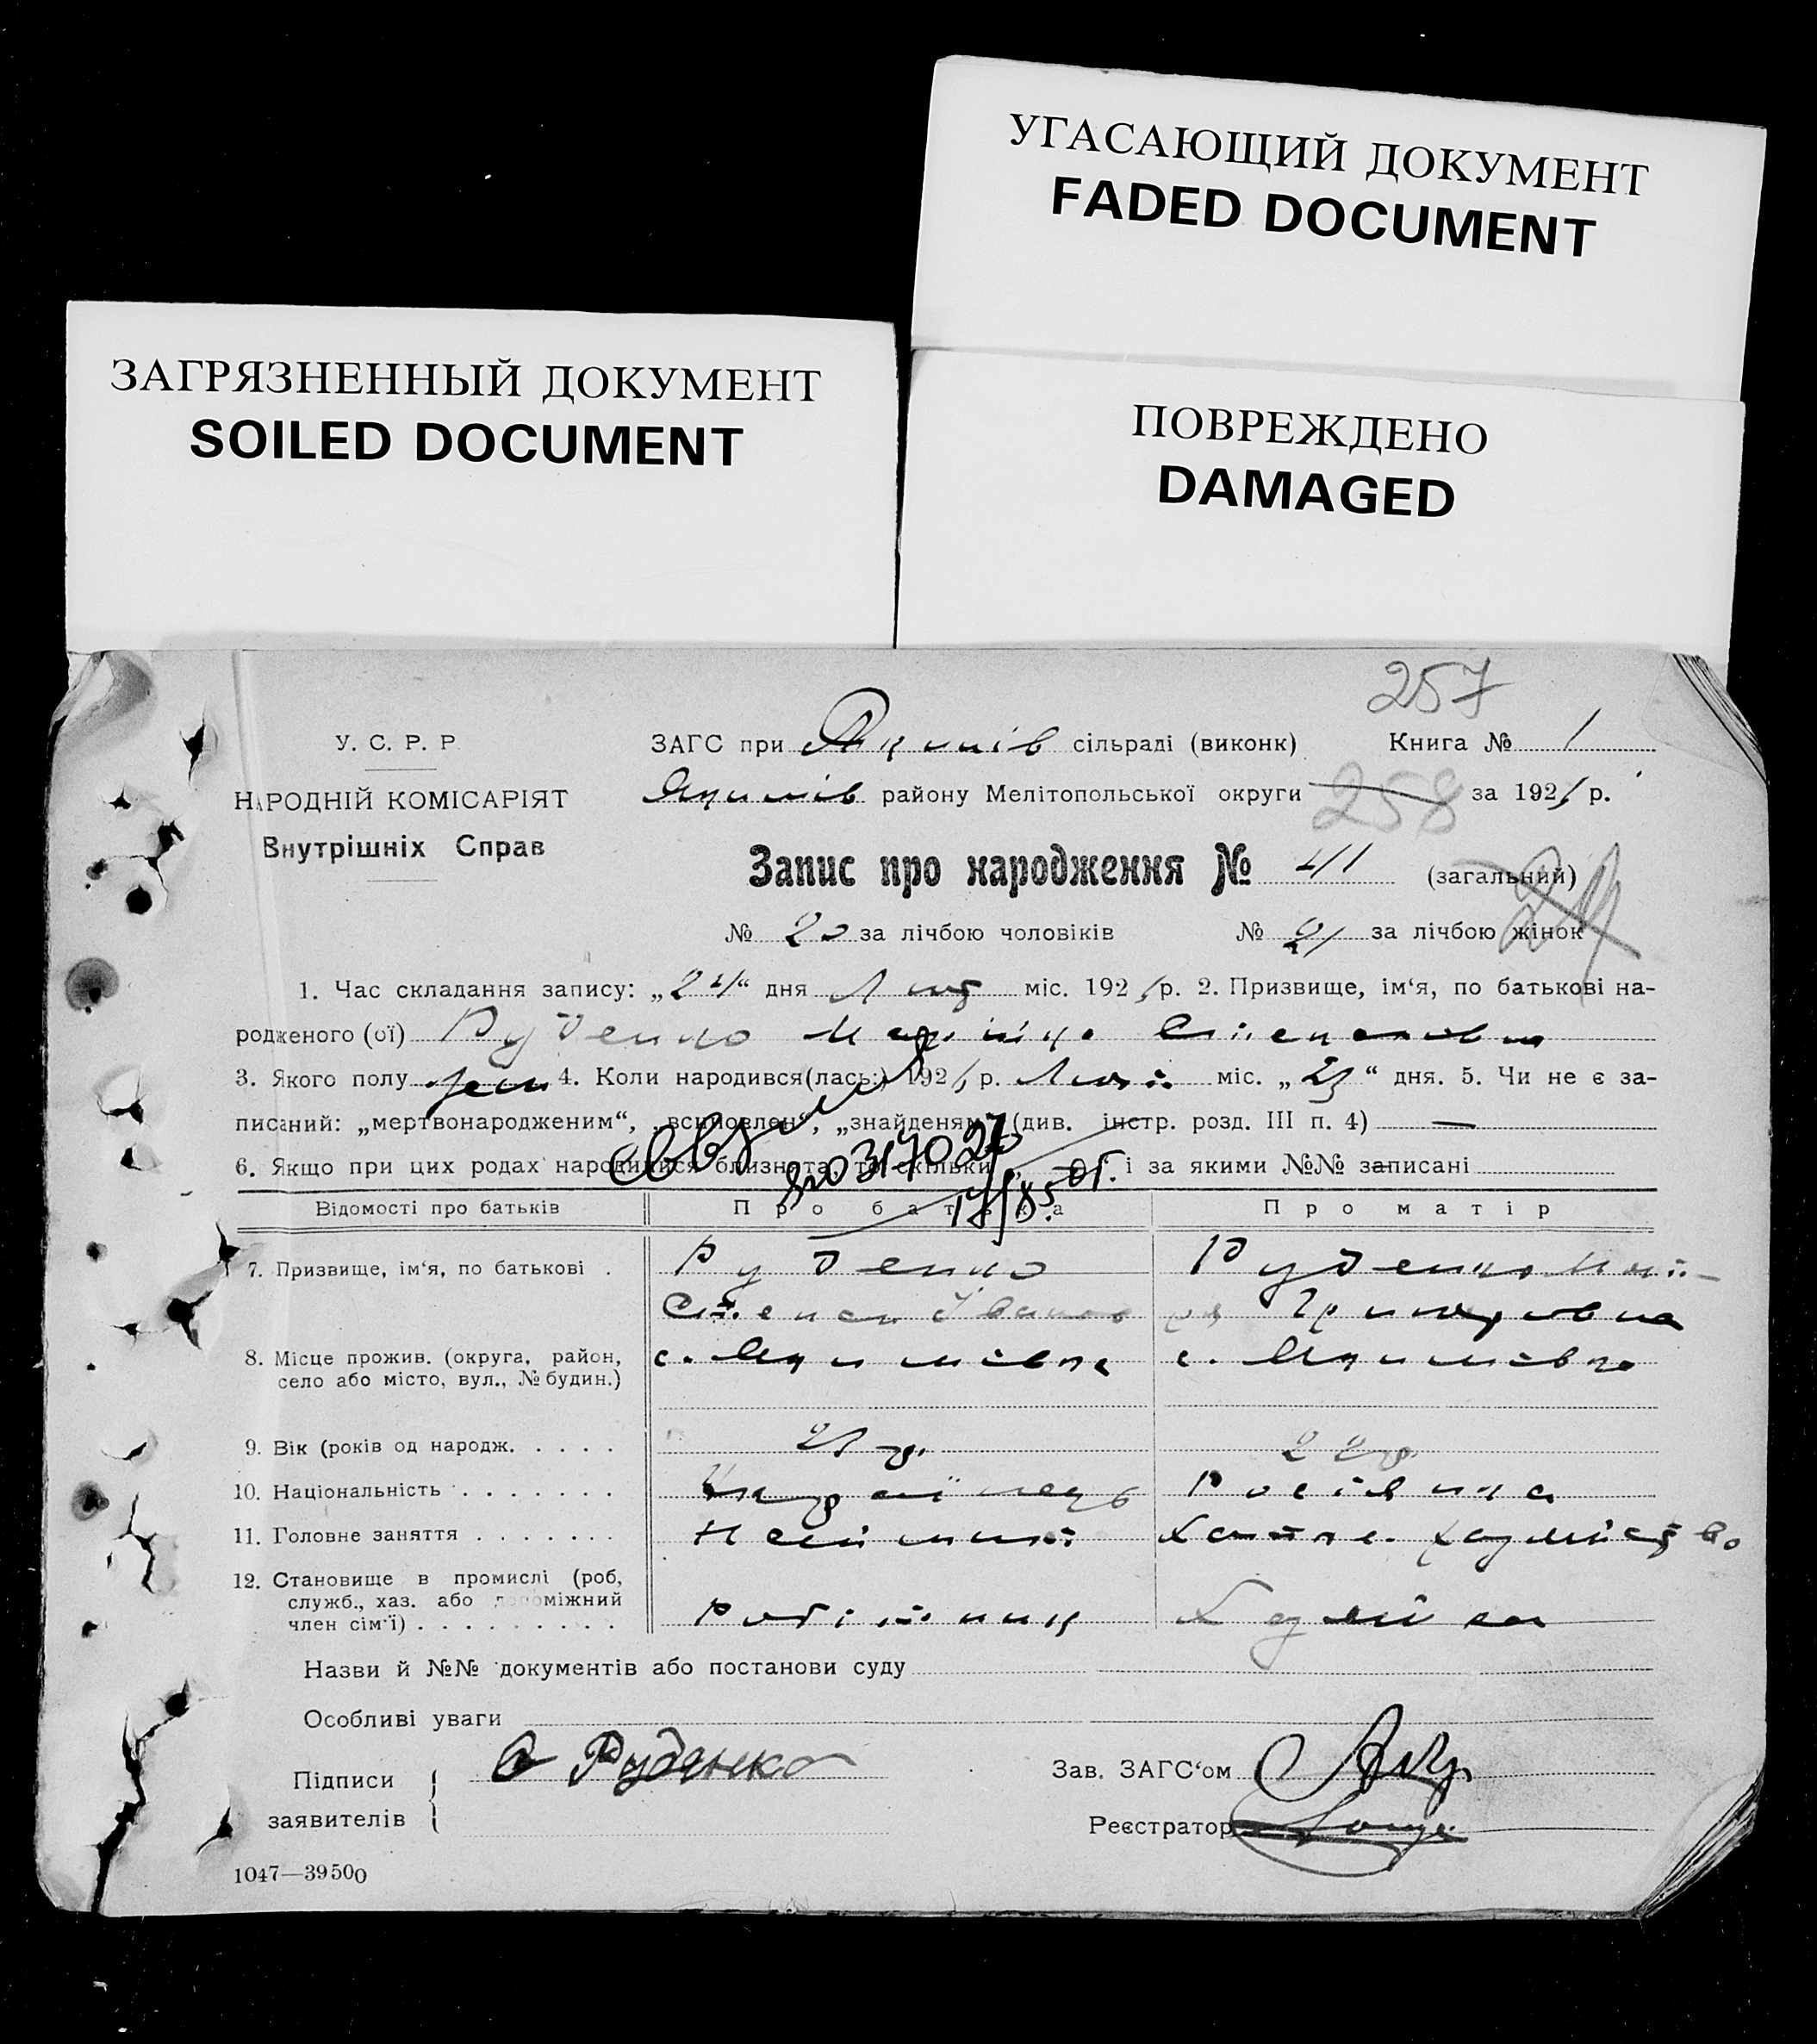 УГАСАЮЩИЙ ДОКУМЕНТ
FADED DOCUMENT
ЗАГРЯЗНЕННЫЙ ДОКУМЕНТ
SOILED DOCUMENT
ПОВРЕЖДЕНО
DAMAGED
257
У. С. Р. Р.
ЗАГС при Якимів сільраді (виконк) Книга № 1
НАРОДНІЙ КОМІСАРІЯТ
Якимів району Мелітопольської округи 258 за 192 р.
Внутрішніх Справ
Запис про народження № 41 (загальний)
№ 20 за лічбою чоловіків № 21 за лічбою жінок
1. Час складання запису: „24“ дня міс. 192 р. 2. Призвище, ім‘я, по батькові на-
родженого (ої) Руденко Степановна
3. Якого полу жен 4. Коли народився(лась:) 192 р. міс. „ “ дня. 5. Чи не є за-
писаний: „мертвонародженим“, „всиновлен“, „знайденям“ (див. інстр. розд. III п. 4) —
6. Якщо при цих родах народилися близнята, то скільки і за якими №№ записані
Відомості про батьків Про батька Про матір
7. Призвище, ім‘я, по батькові . Руденко Руденко
Степан Іванов
8. Місце прожив. (округа, район, село або місто, вул., № будин.) с. Якимівка с. Якимівка
9. Вік (років од народж. . . . . 22 р.
10. Національність . . . . . . . Українець Росіянка
11. Головне заняття . . . . . . . Наймит Хатнє
12. Становище в промислі (роб, служб., хаз. або допоміжний член сім‘ї) . . . . . . . . . Робітник Хазяйка
Назви й №№ документів або постанови суду
Особливі уваги
Підписи заявителів С Руденко
Зав. ЗАГС‘ом
Реєстратор
1047—39500